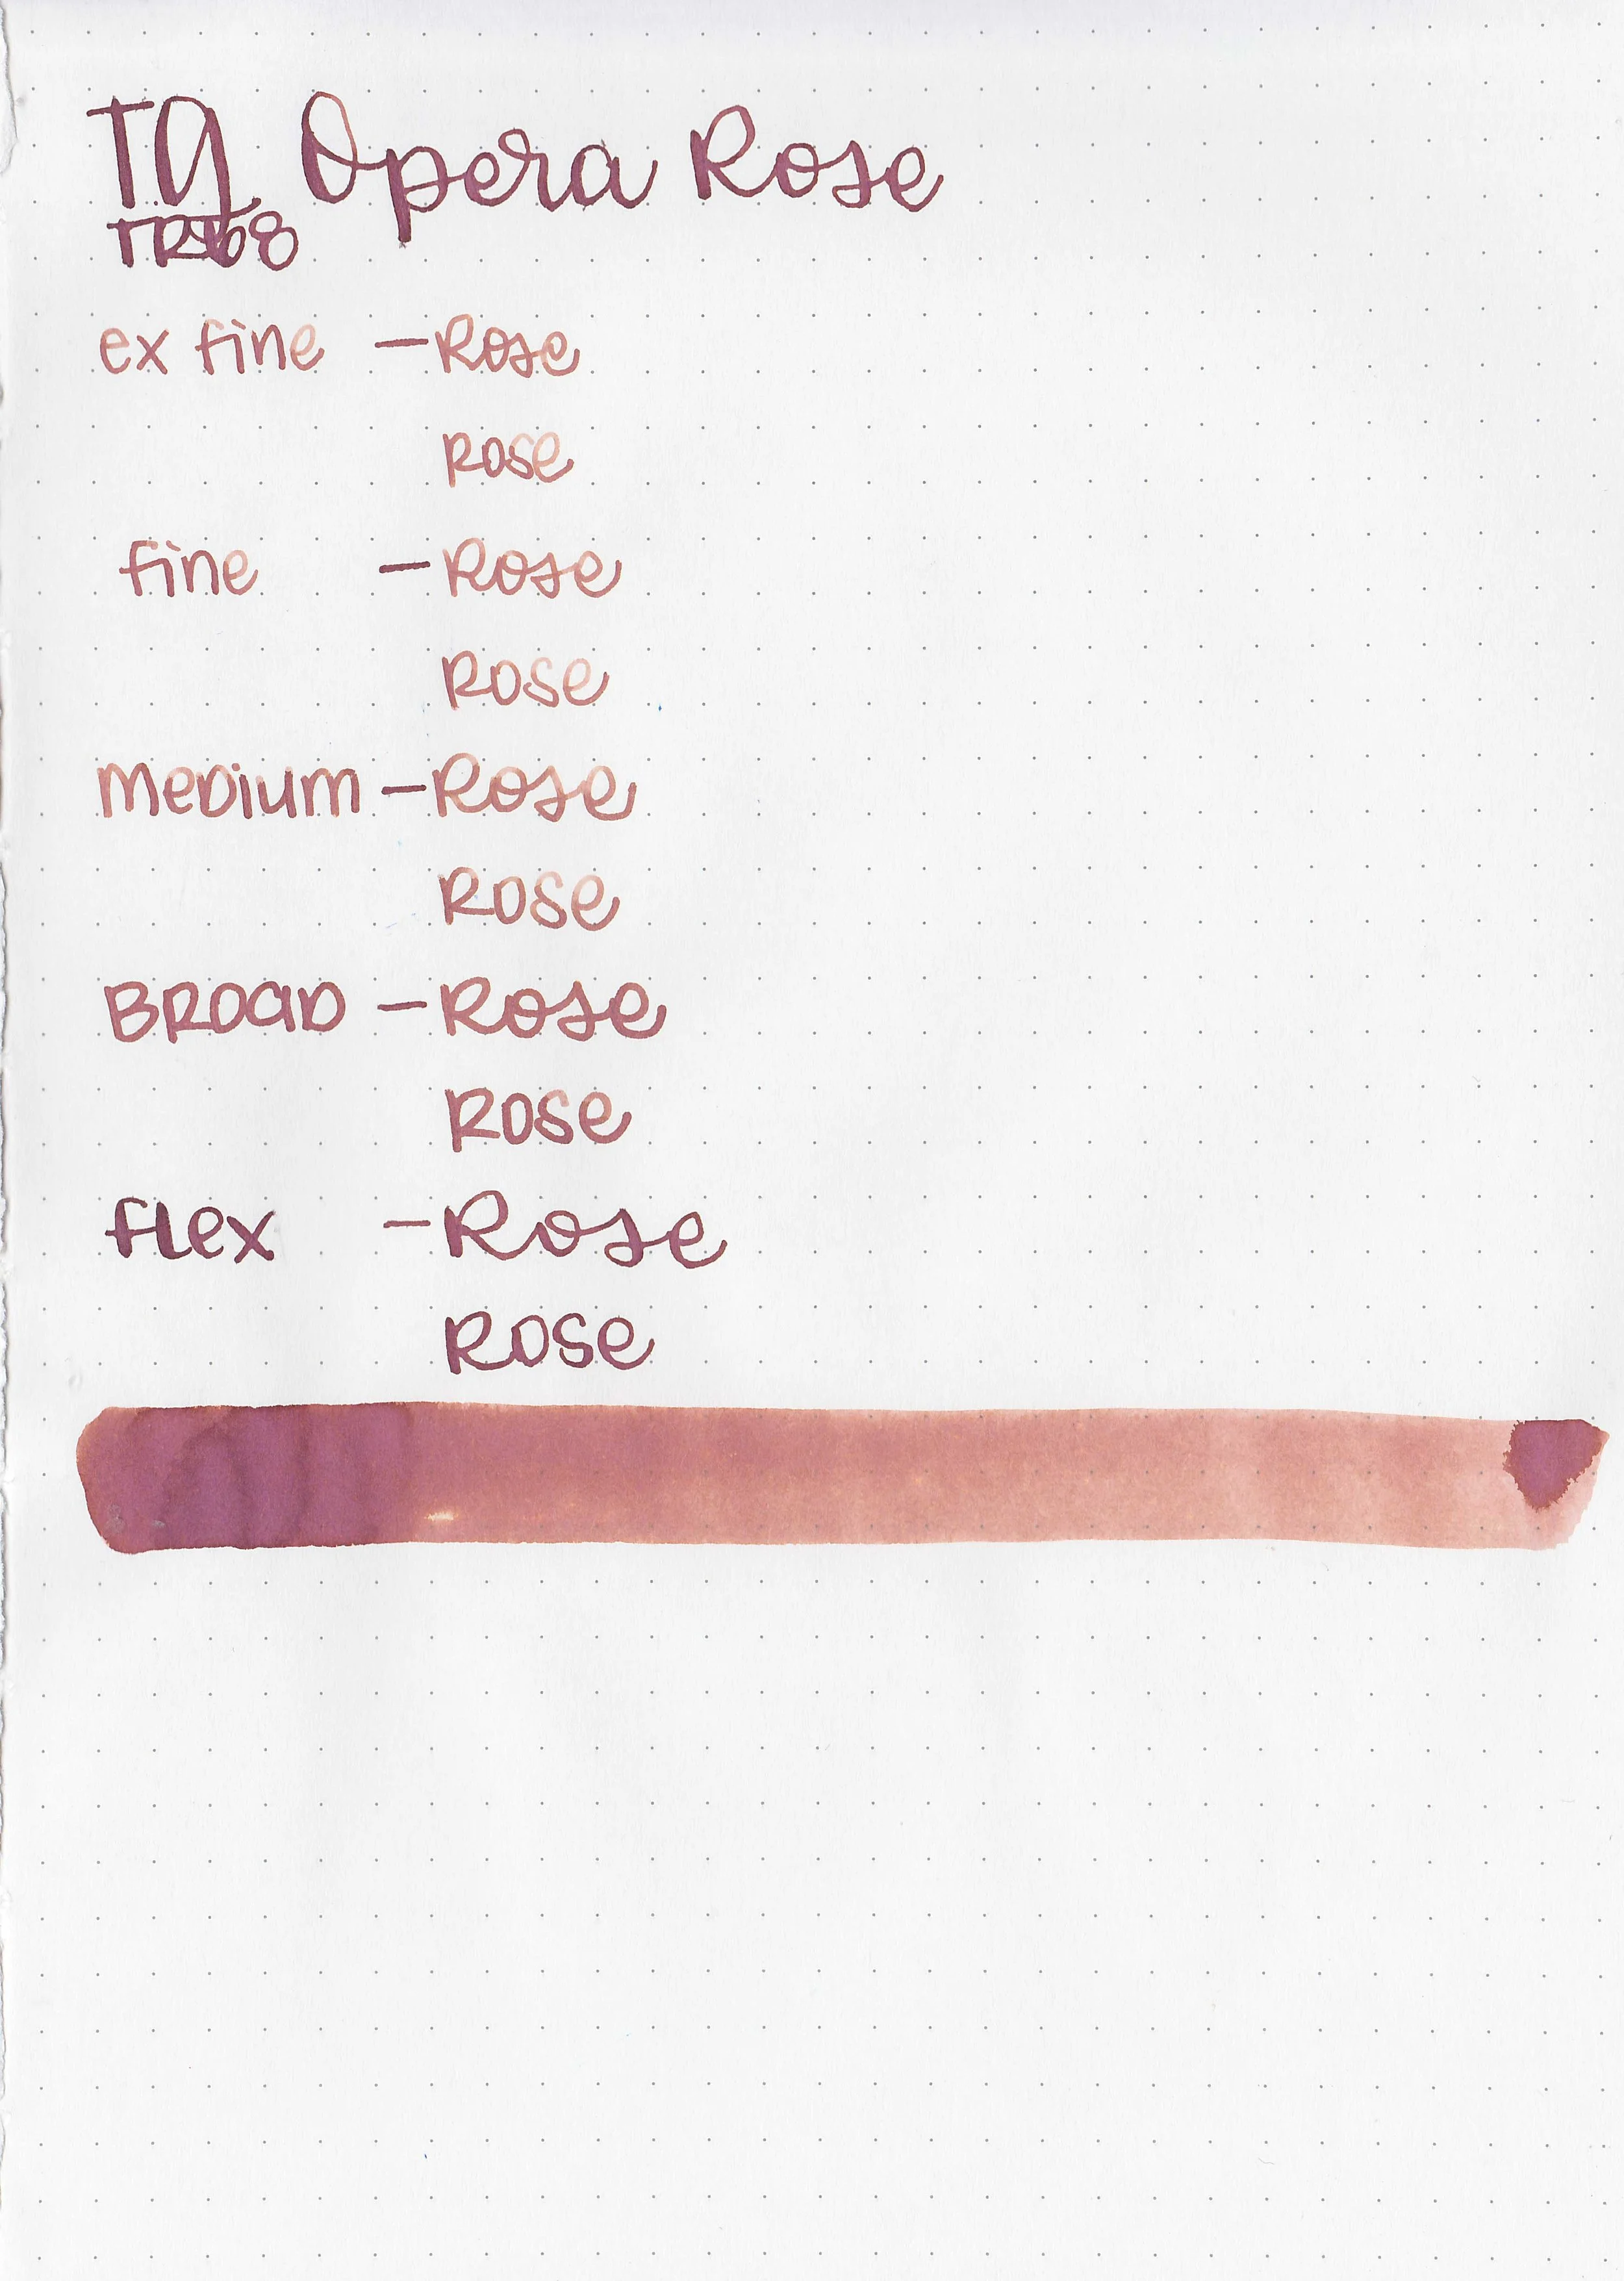 TG Opera Rose
TR68
ex fine - Rose
Rose
fine - Rose
Rose
Medium - Rose
Rose
Broad - Rose
Rose
flex - Rose
Rose